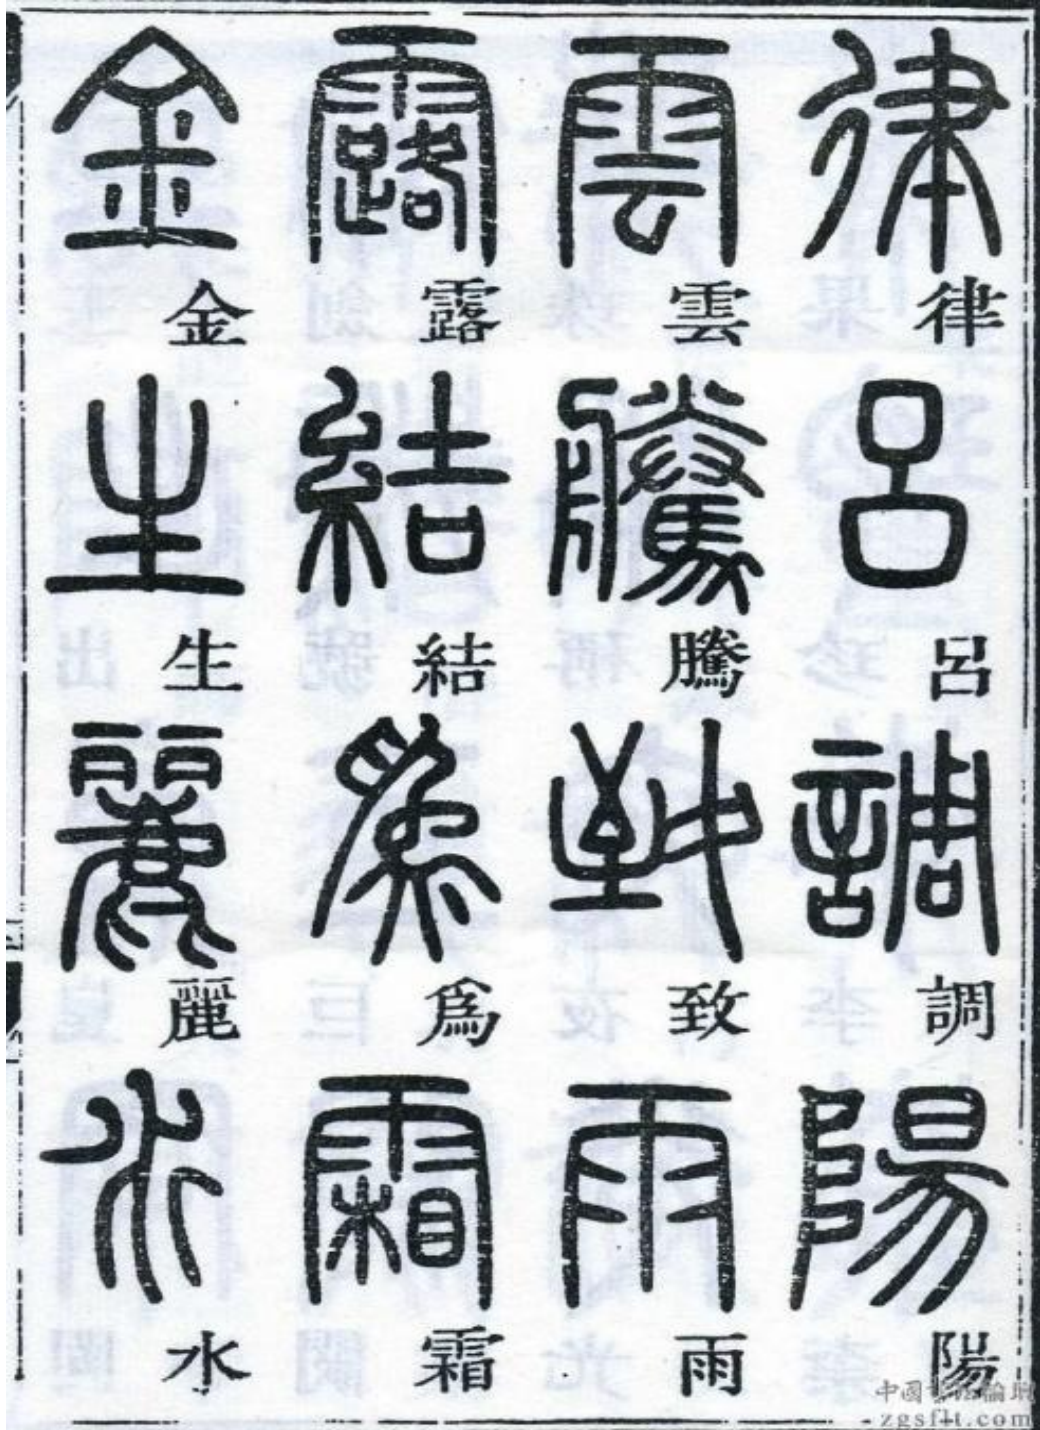 律律呂呂調調陽陽
雲雲騰騰致致雨雨
露露結結爲爲霜霜
金金生生麗麗水水
zgsflt.com